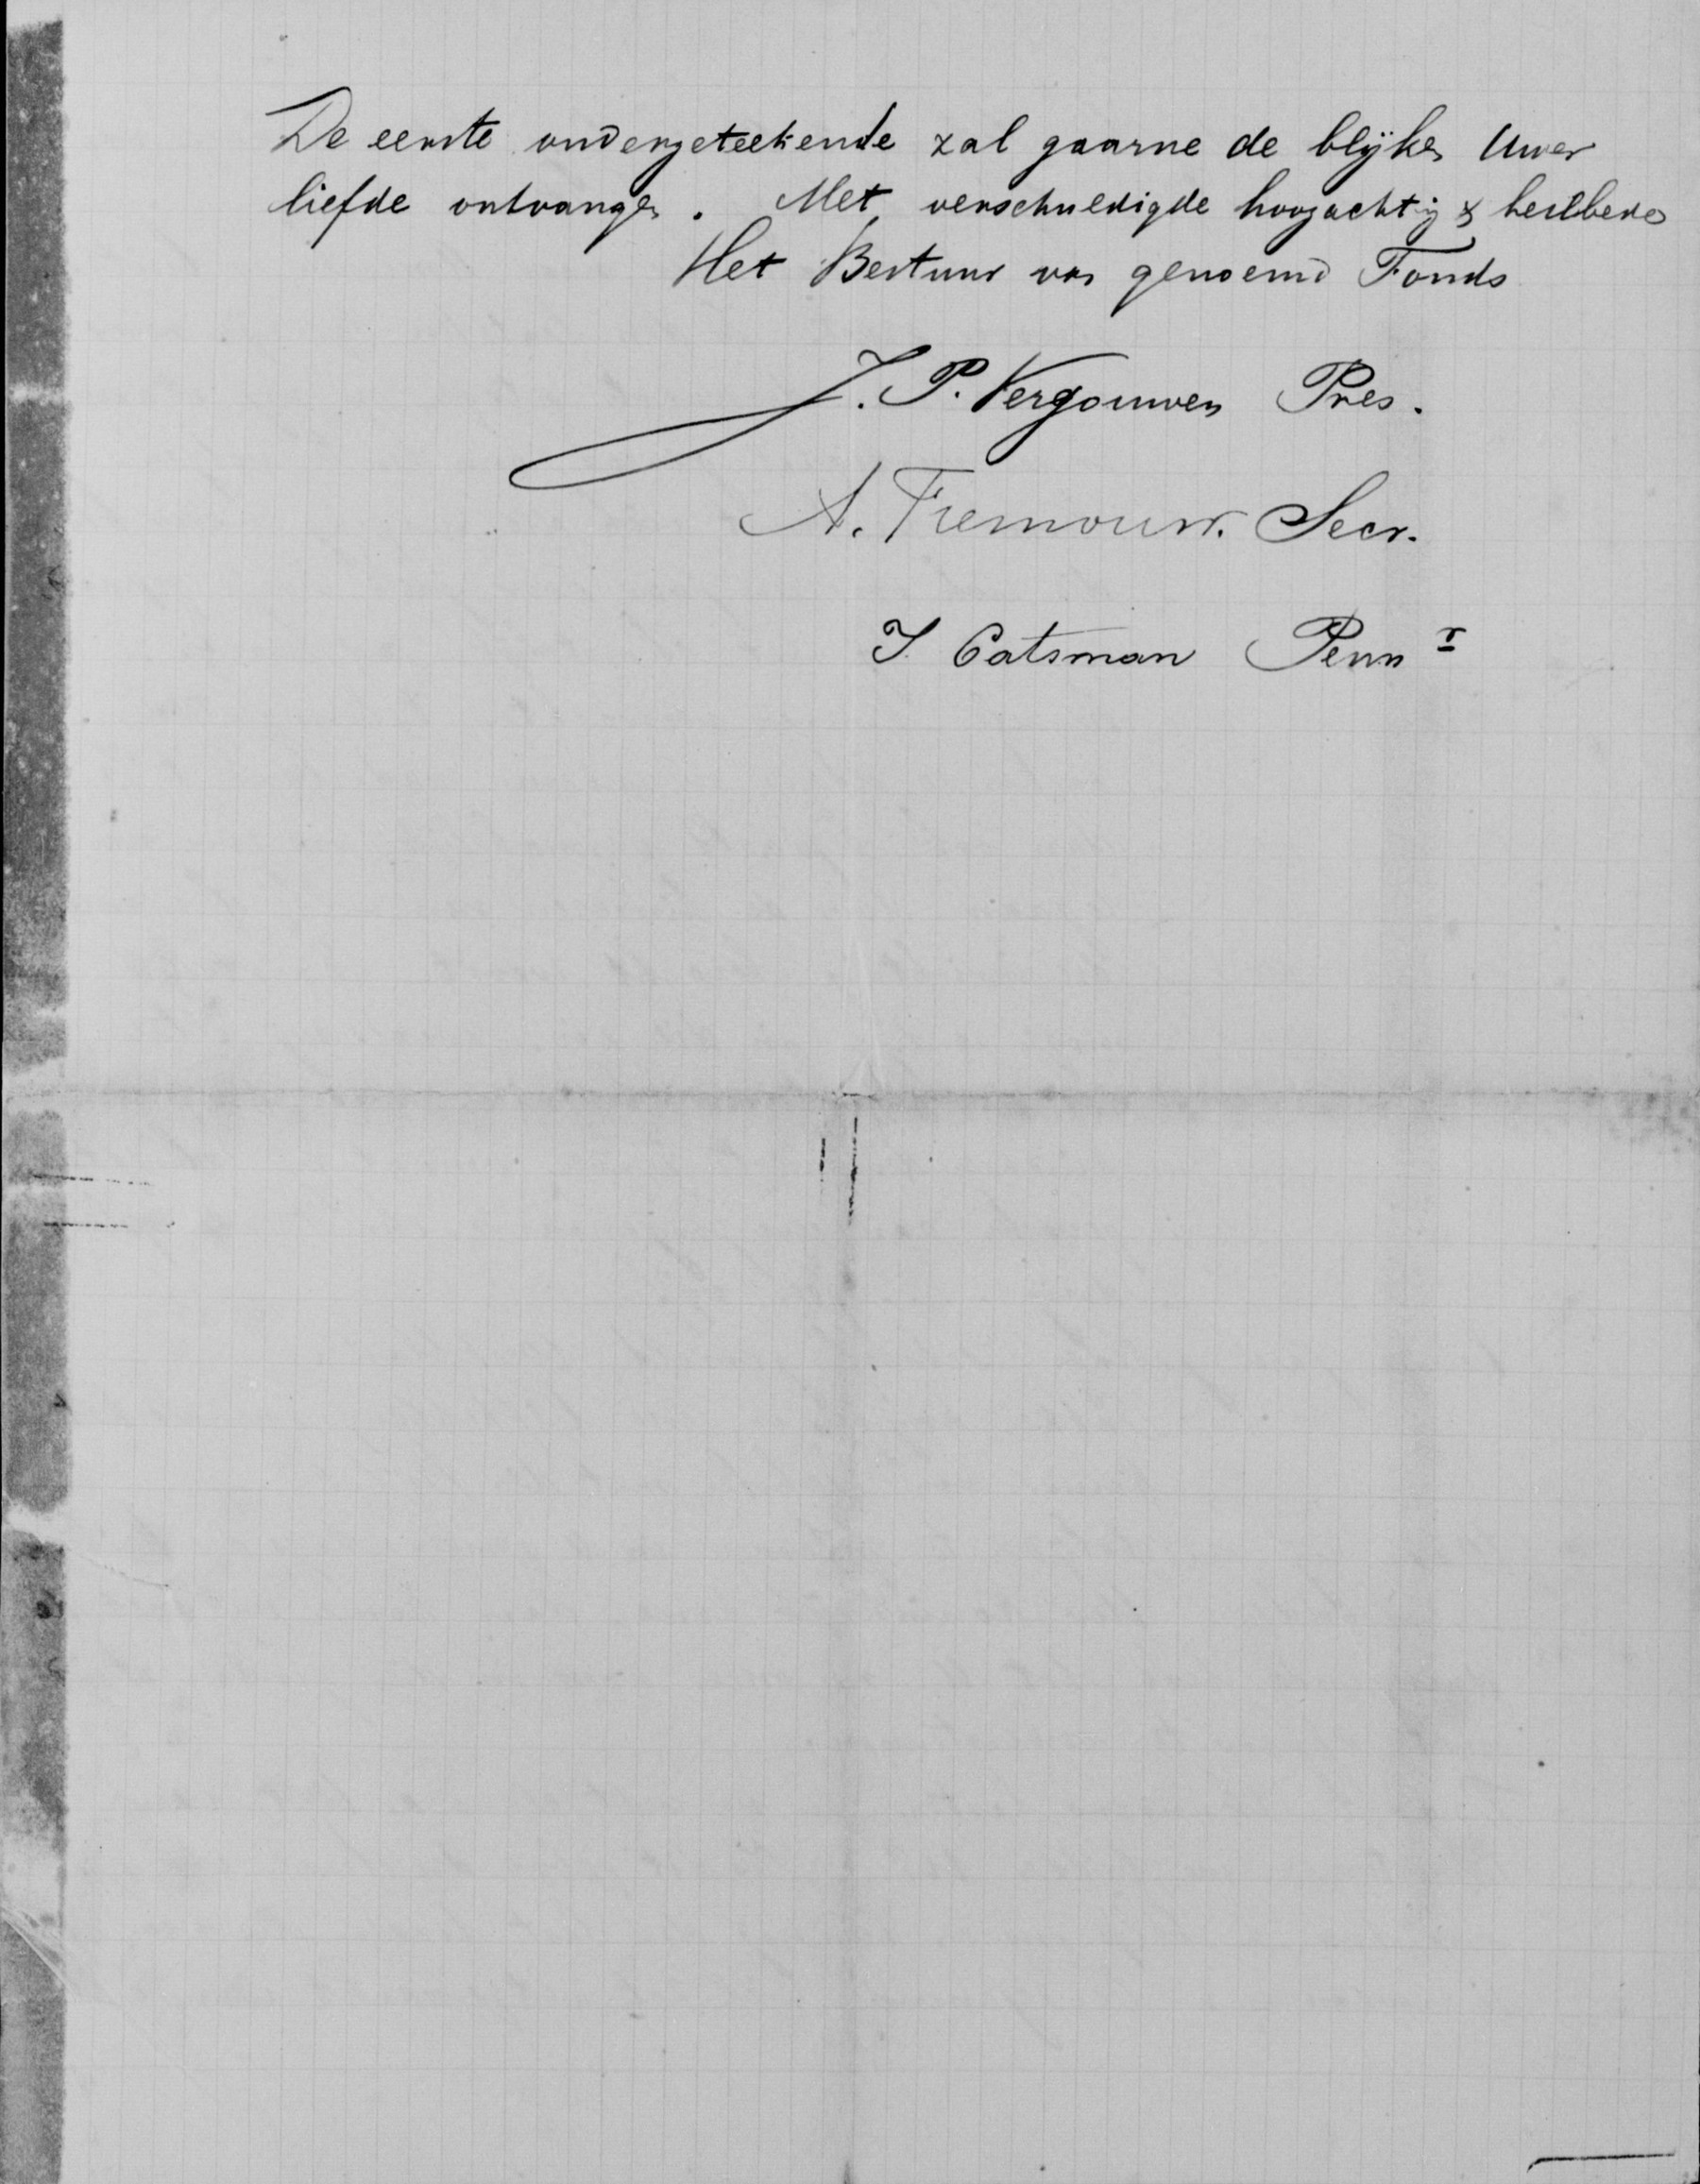 De eerste ondergeteekende zal gaarne de blijken Uwer
liefde ontvangen. Met verschuldigde hoogachting & heilbede
Het Bestuur van genoemd Fonds
J. P. Vergouwen Pres.
A. Tremouw. Secr.
J Catsman Pennr